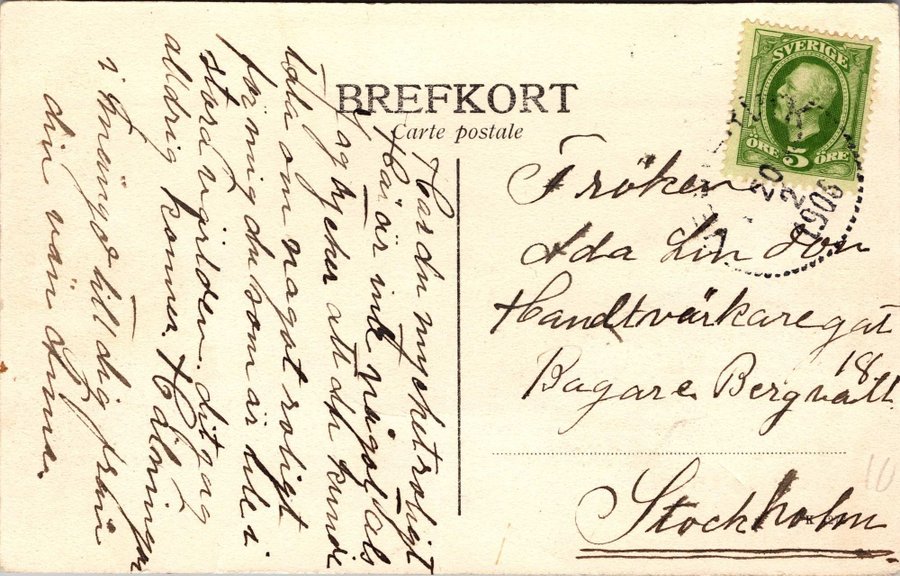 BREFKORT
Carte postale
SVERIGE
5 ÖRE 5 ÖRE
20
2
1906
Fröken
Ada Lindbom
Handtvärkaregat
18
Bagare Bergvall
Stockholm
Har du mycket roligt
Här är inte något als
Jag tycker att du kunde
tala om något roligt
för mig du som är ute i
stora verlden. dit jag
alldrig kommer. Hälningar
i till dig från
din vän
10